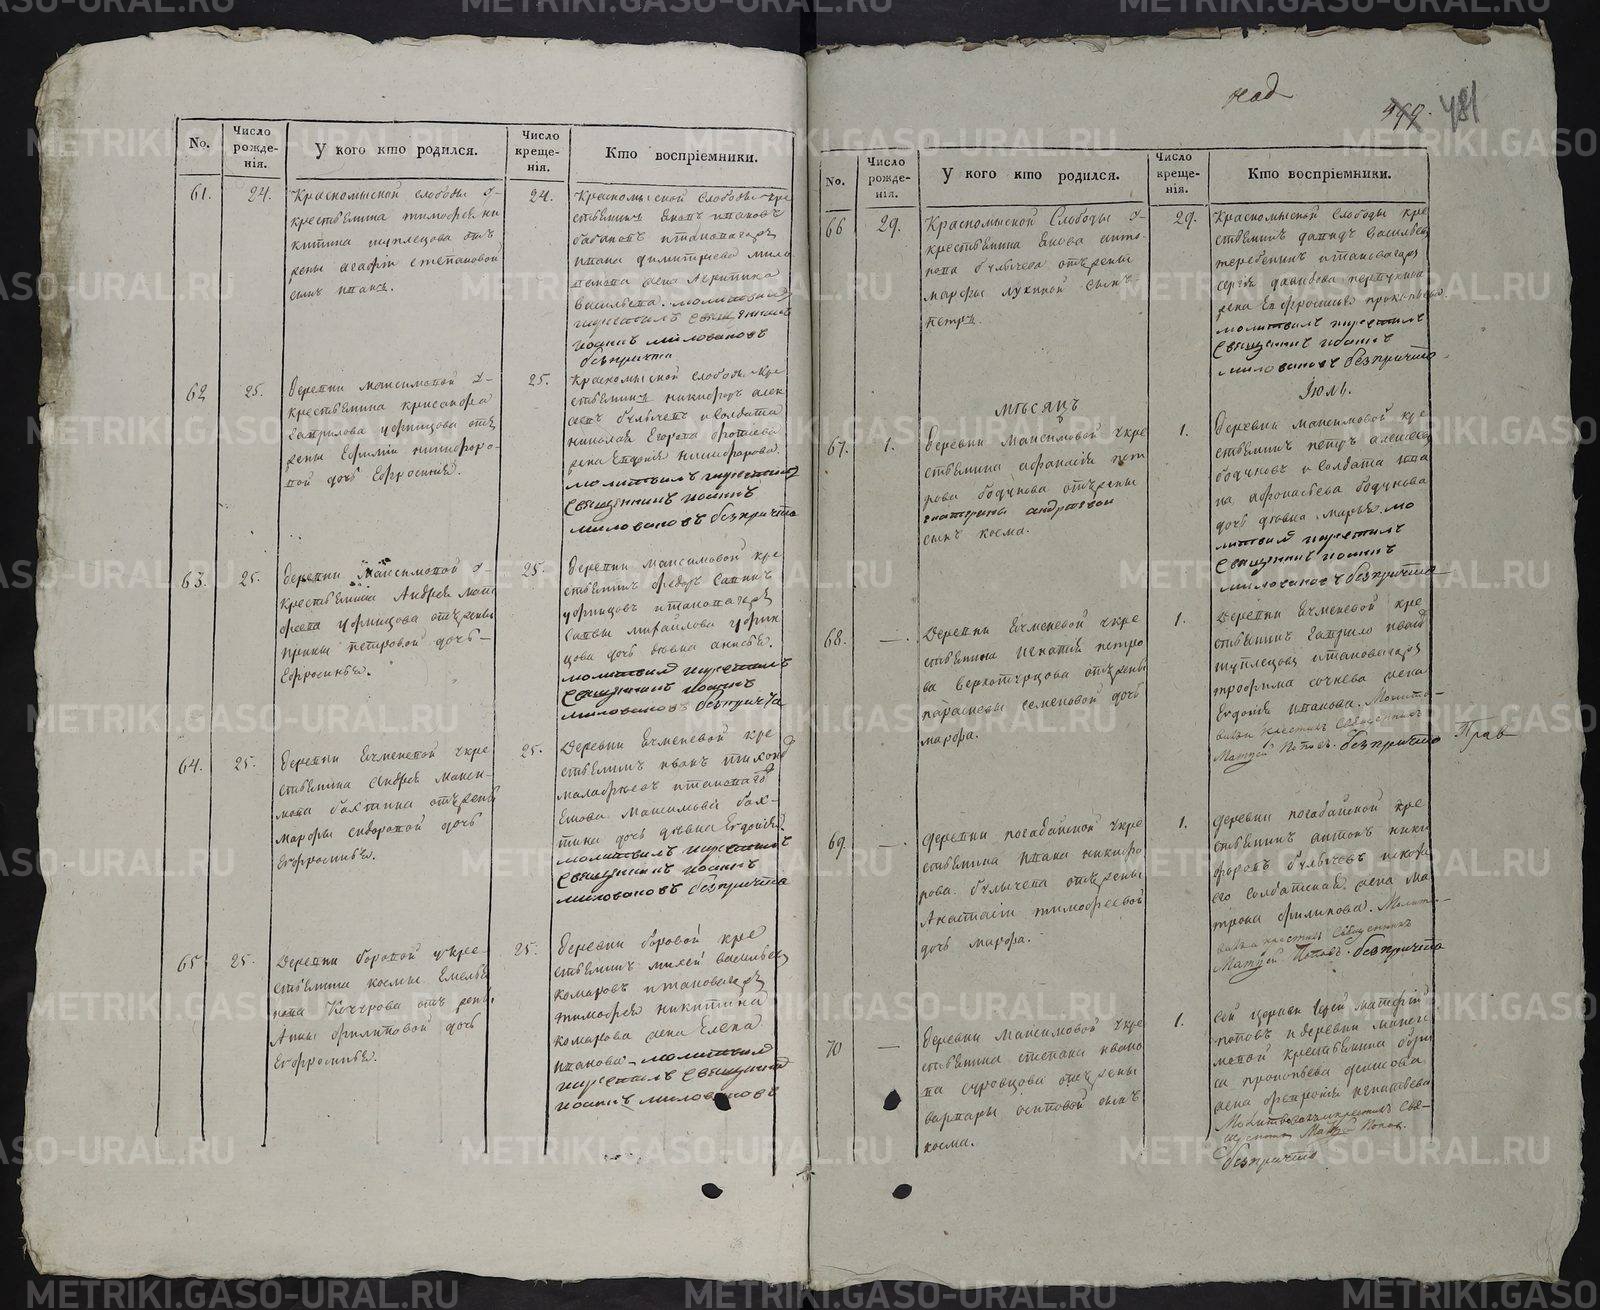 над
499. 481
No.
Число рожде-нія.
У кого кто родился.
Число креще-нія.
Кто воспріемники.
61.
24.
Красномыской слободы у
крестьянина тимофея ни
китина шуплецова отъ
жены агафіи степановой
сынъ иванъ.
24.
Красномыской слободы кре
стьянинъ иванова
ивана димитріева мило
ванова жена
васильева. молитвилъ
икрестилъ священникъ
иоаннъ миловановъ
безпричта
62
25.
деревни максимовой у
крестьянина хрисанфа
гаврилова уфинцова отъ
жены ефимии никифоро-
вой дочь Ефросинія.
25.
Красномыской слободы кре
стьянинъ никифоръ алек
сеевъ булычевъ и солдата
николая Егорова
жена Евдокія никифорова.
молитвилъ икрестилъ
священникъ иоаннъ
миловановъ безпричта
63.
25.
деревни Максимовой у
крестьянина Андрея мат
феева уфинцова отъ жены
ирины петровой дочь
Ефросинья.
25.
деревни максимовой кре
стьянинъ федоръ савинъ
уфинцовъ
савы михайлова уфин
цова дочь девка анисья.
молитвилъ икрестилъ
священникъ иоаннъ
миловановъ безпричта
64.
25.
деревни Ечменевой укре
стьянина Андрея макси-
мова бахтина отъ жены
марфы сидоровой дочь
Егфросинья.
25.
деревни Ечменевой кре
стьянинъ иванъ тихонов
Екова Максимова бах-
тина дочь девка Евдокія.
молитвилъ икрестилъ
священникъ иоаннъ
миловановъ безпричта
65
25.
деревни боровой укре-
стьянина космы Емелья
нова Кочурова отъ жены
Анны филиповой дочь
Егфросинья.
25.
деревни боровой кре
стьянинъ михей васильев
комаровъ
тимофея никитина
комарова жена Елена
иванова. молитвилъ
икрестилъ священникъ
иоаннъ миловановъ
No.
Число рожде-нія.
У кого кто родился.
Число креще-нія.
Кто воспріемники.
66
29.
Красномыской Слободы у
крестьянина Екова анто-
нова булычева отъ жены
марфы лукиной сынъ
петръ.
29.
Красномыской слободы кре
стьянинъ давидъ васильев
жеребенинъ
сергея давыдова
жена Евфросинья прокопьева.
молитвилъ икрестилъ
священникъ иоаннъ
миловановъ безпричта
мѣсяцъ
Іюль.
67.
1.
деревни максимовой укре
стьянина афанасія пет
рова бодунова отъ жены
екатерины андреевой
сынъ косма.
1.
деревни максимовой кре
стьянинъ петръ алексеев
бодуновъ и солдата ива
на афонасьева бодунова
дочь девка марья. мо
литвил икрестилъ
священникъ иоаннъ
миловановъ безпричта
68.
—.
деревни Ечменевой укре
стьянина игнатія петро
ва верхотурцова отъ жены
парасковьи семеновой дочь
марфа.
1.
деревни Ечменевой кре
стьянинъ гаврило иванов
шуплецовъ
трофима сочнева жена
Евдокія иванова. Молит-
вилъ и крестилъ Священникъ
Матфей Поповъ. безпричта
Прав
69
—.
деревни погадайской укре
стьянина ивана никифо
рова булычева отъ жены
Анастасіи тимофеевой
дочь марфа.
1.
деревни погадайской кре
стьянинъ антонъ ники
форовъ булычевъ
его солдатская жена ма
трона филипова. Молит-
вилъ и крестилъ Священникъ
Матфей Поповъ. безпричта
70
—
деревни максимовой укре
стьянина степана ивано
ва суровцова отъ жены
варвары осиповой сынъ
косма.
1.
сей церкви матфей
поповъ и деревни макси
мовой крестьянина бори
са прокопьева
жена феврония игнатьева
Молитвовалъ и крестилъ Свя-
щенникъ Матфей Попов.
безпричта
METRIKI.GASO-URAL.RU